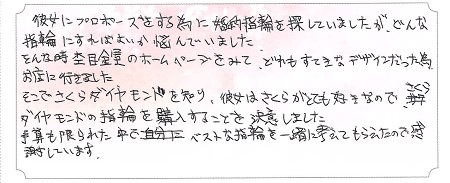 彼女にプロポーズをする為に婚約指輪を探していましたが、どんな
指輪にすればよいか悩んでいました
そんな時杢目金屋のホームページをみて、どれもすてきなデザインだった為
お店に行きました
そこでさくらダイヤモンドを知り、彼女はさくらがとても好きなので さくら
ダイヤモンドの指輪を購入することを決意しました
予算も限られた中で自分に ベストな指輪を一緒に考えてもらえたので感
謝しています。